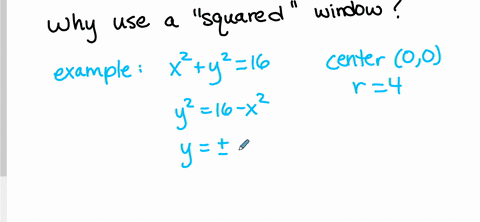 Why use a "squared" window?
example: x² + y² = 16 center (0,0)
r = 4
y² = 16 - x²
y = ±